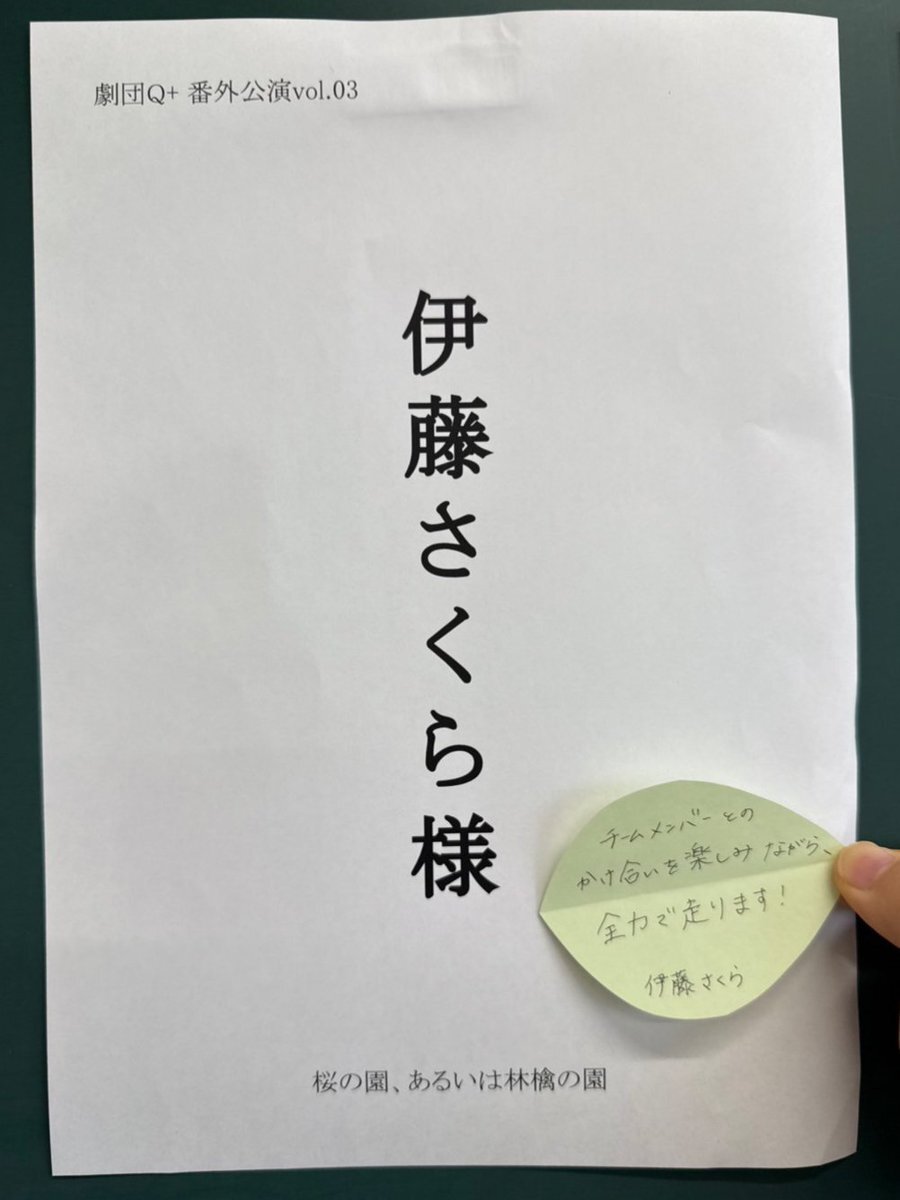 劇団Q+ 番外公演vol.03
伊藤さくら様
チームメンバーとの
かけ合いを楽しみながら、
全力で走ります!
伊藤さくら
桜の園、あるいは林檎の園